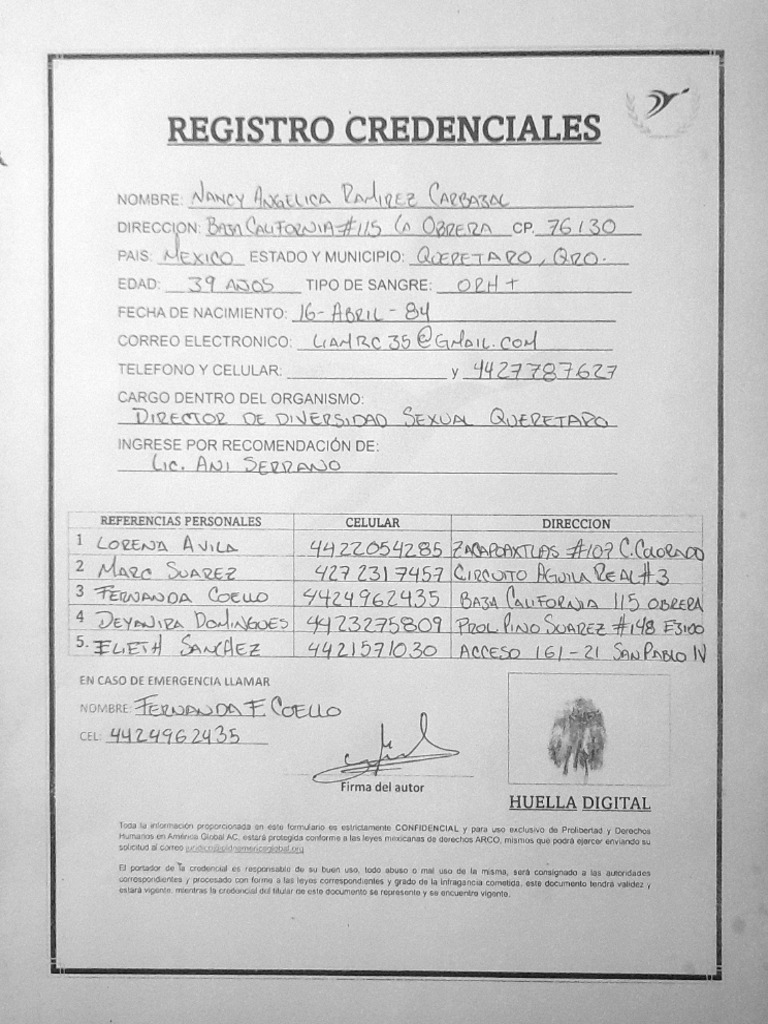 REGISTRO CREDENCIALES
NOMBRE: NANCY ANGELICA RAMIREZ CARBAJAL
DIRECCION: BAJA CALIFORNIA #115 LA OBRERA CP. 76130
PAIS: MEXICO ESTADO Y MUNICIPIO: QUERETARO, QRO.
EDAD: 39 AÑOS TIPO DE SANGRE: ORH +
FECHA DE NACIMIENTO: 16-ABRIL-84
CORREO ELECTRONICO: LIAMRC35@GMAIL.COM
TELEFONO Y CELULAR: y 4427787627
CARGO DENTRO DEL ORGANISMO:
DIRECTOR DE DIVERSIDAD SEXUAL QUERETARO
INGRESE POR RECOMENDACIÓN DE:
LIC. ANI SERRANO
REFERENCIAS PERSONALES CELULAR DIRECCION
1 LORENA AVILA 4422054285 ZACAPOAXTLAS #107 C. COLORADO
2 MARC SUAREZ 4272317457 CIRCUITO AGUILA REAL #3
3 FERNANDA COELLO 4424962435 BAJA CALIFORNIA 115 OBRERA
4 DEYANIRA DOMINGUES 4423275809 PROL PINO SUAREZ #148 E3100
5. ELIETH SANCHEZ 4421571030 ACCESO 161-21 SAN PABLO IV
EN CASO DE EMERGENCIA LLAMAR
NOMBRE: FERNANDA F. COELLO
CEL: 4424962435
Firma del autor
HUELLA DIGITAL
Toda la información proporcionada en este formulario es estrictamente CONFIDENCIAL y para uso exclusivo de Prolibertad y Derechos
Humanos en América Global AC, estará protegida conforme a las leyes mexicanas de derechos ARCO, mismos que podrá ejercer enviando su
solicitud al correo
El portador de la credencial es responsable de su buen uso, todo abuso o mal uso de la misma, será consignado a las autoridades
correspondientes y procesado con forme a las leyes correspondientes y grado de la infragancia cometida, este documento tendrá validez y
estará vigente, mientras la credencial del titular de este documento se represente y se encuentre vigente.